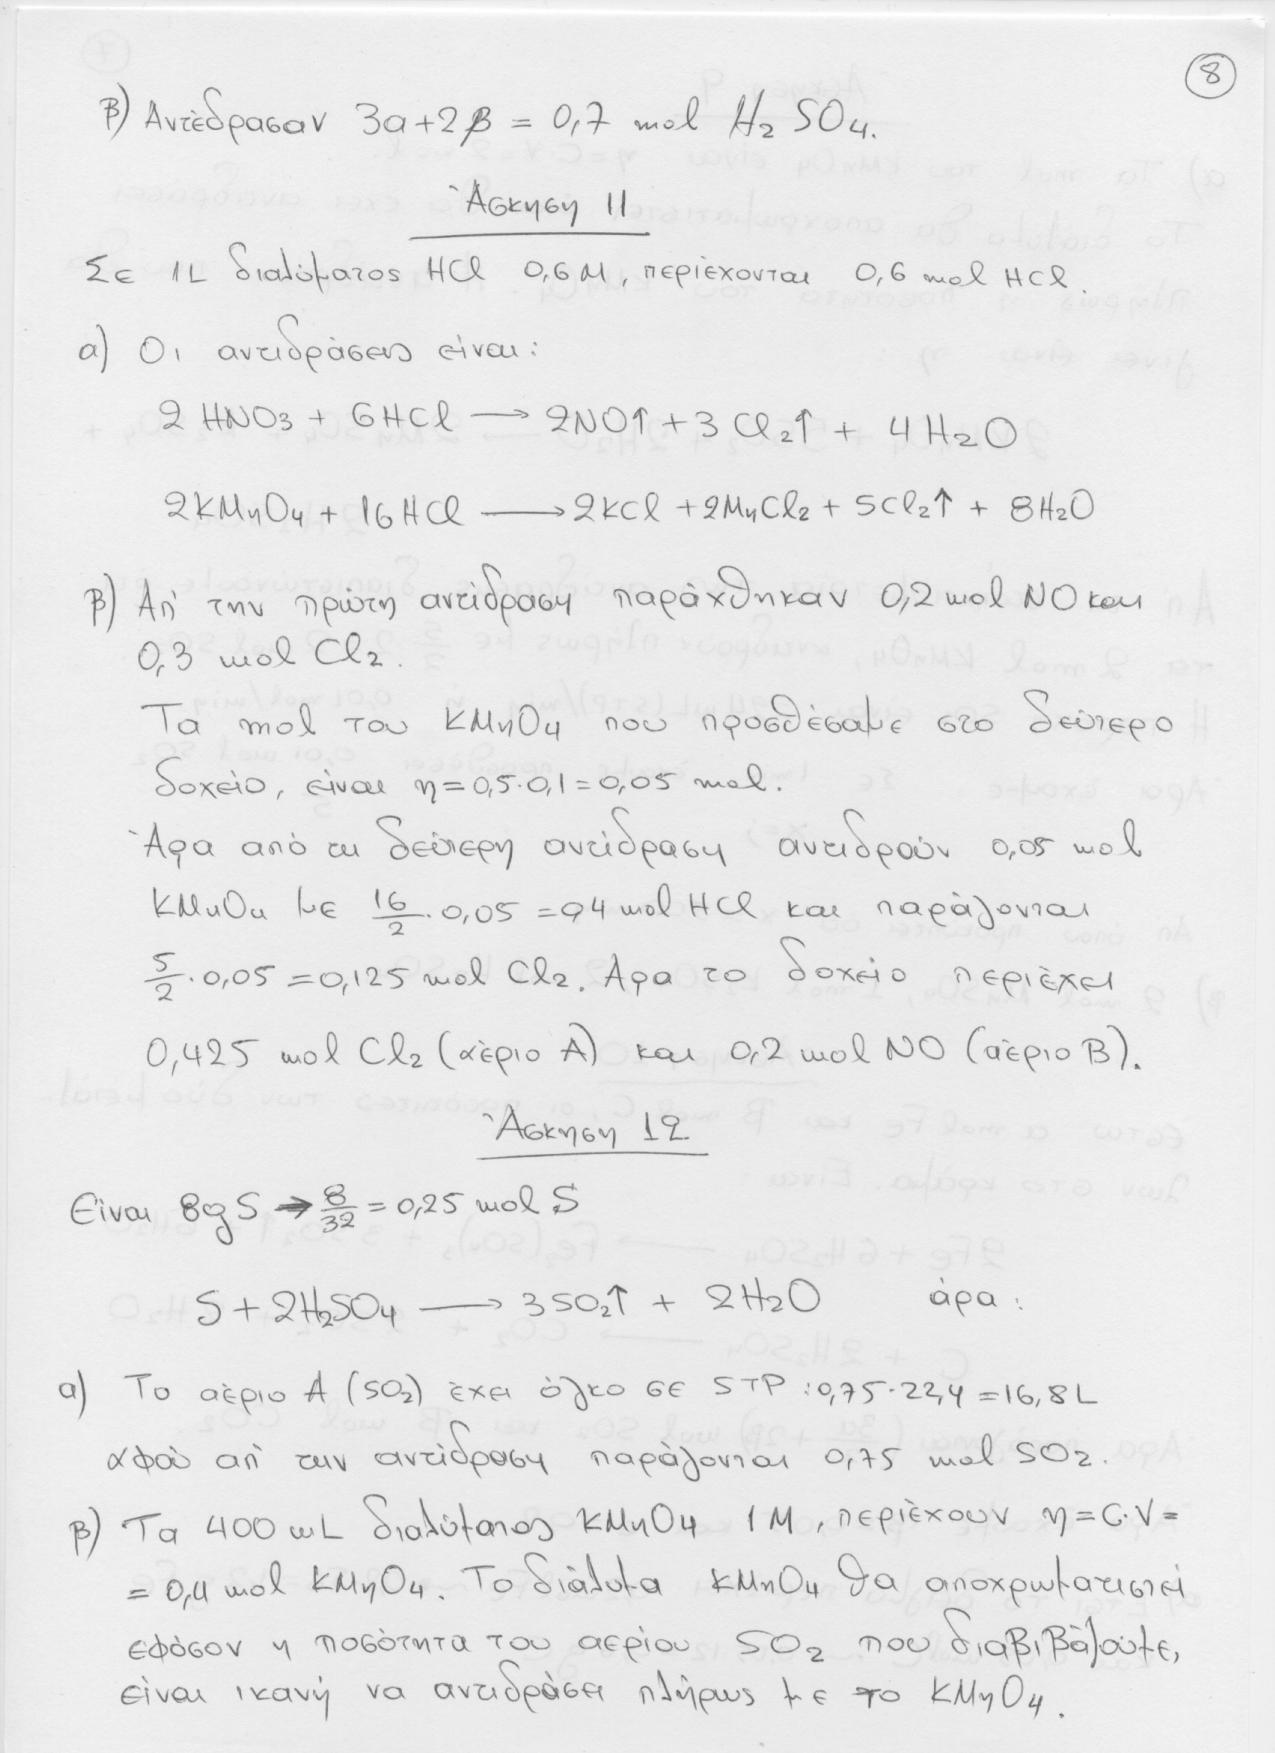 8
β) Αντέδρασαν 3α+2β = 0,7 mol H₂SO₄.
Άσκηση 11
Σε 1L διαλύματος HCl 0,6M, περιέχονται 0,6 mol HCl.
α) Οι αντιδράσεις είναι:
2HNO₃ + 6HCl → 2NO↑ + 3Cl₂↑ + 4H₂O
2KMnO₄ + 16HCl → 2KCl + 2MnCl₂ + 5Cl₂↑ + 8H₂O
β) Απ' την πρώτη αντίδραση παράχθηκαν 0,2 mol NO και
0,3 mol Cl₂.
Τα mol του KMnO₄ που προσθέσαμε στο δεύτερο
δοχείο, είναι η=0,5·0,1=0,05 mol.
Άρα από τη δεύτερη αντίδραση αντιδρούν 0,05 mol
KMnO₄ με 16/2·0,05=04 mol HCl και παράγονται
5/2·0,05=0,125 mol Cl₂. Άρα το δοχείο περιέχει
0,425 mol Cl₂ (αέριο A) και 0,2 mol NO (αέριο B).
Άσκηση 12
Είναι 8g S → 8/32 = 0,25 mol S
S + 2H₂SO₄ → 3SO₂↑ + 2H₂O άρα:
α) Το αέριο A (SO₂) έχει όγκο σε STP: 0,75·22,4=16,8L
αφού απ' την αντίδραση παράγονται 0,75 mol SO₂.
β) Τα 400 mL διαλύματος KMnO₄ 1M, περιέχουν η=C·V=
= 0,4 mol KMnO₄. Το διάλυμα KMnO₄ θα αποχρωματιστεί
εφόσον η ποσότητα του αερίου SO₂ που διαβιβάζουμε,
είναι ικανή να αντιδράσει πλήρως με το KMnO₄.